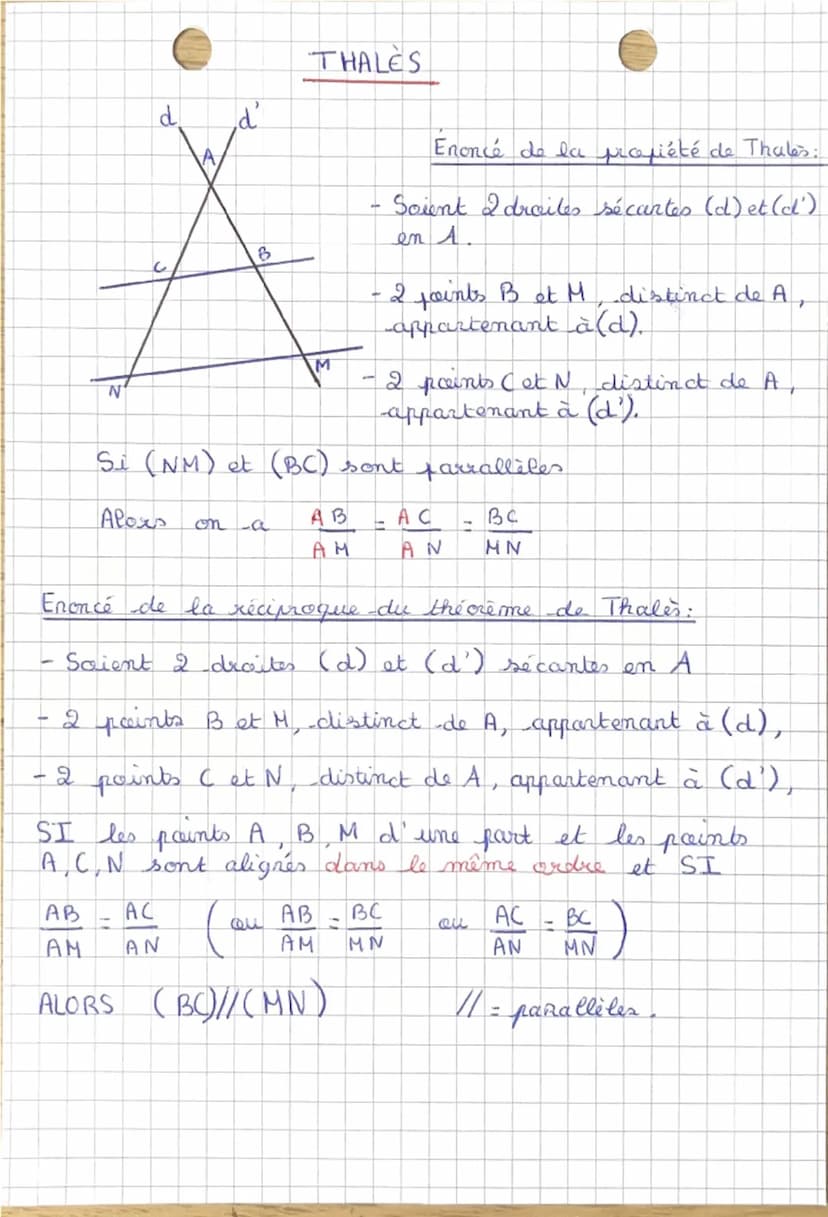 THALÈS
d d'
A
C B
N M
Énoncé de la propiété de Thalès:
- Soient 2 droites sécantes (d) et (d')
en A.
- 2 points B et M, distinct de A,
appartenant à (d).
- 2 points C et N, distinct de A,
appartenant à (d').
Si (NM) et (BC) sont parrallèles
Alors on a AB/AM = AC/AN = BC/MN
Enoncé de la réciproque du théorème de Thalès:
- Soient 2 droites (d) et (d') sécantes en A
- 2 points B et M, distinct de A, appartenant à (d),
- 2 points C et N, distinct de A, appartenant à (d'),
SI les points A, B, M d'une part et les points
A, C, N sont alignés dans le même ordre et SI
AB/AM = AC/AN (ou AB/AM = BC/MN ou AC/AN = BC/MN)
ALORS (BC)//(MN) // = parallèles.